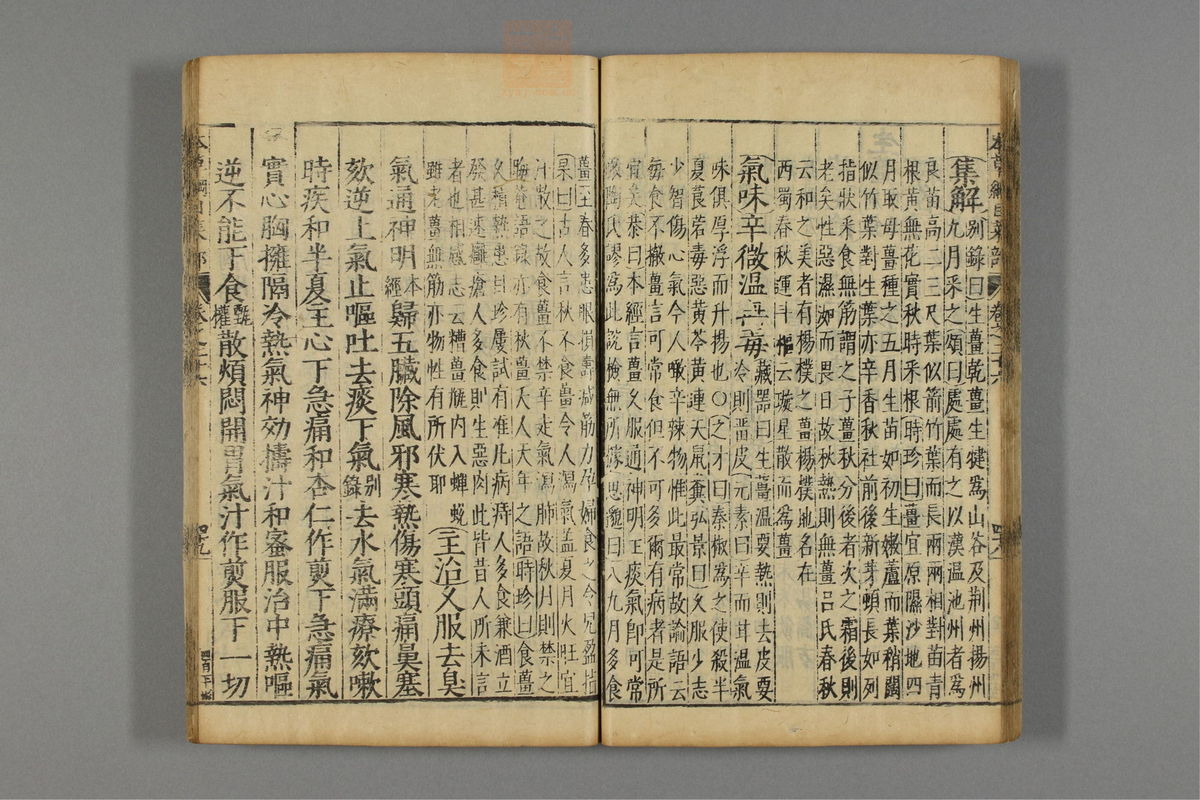 本草綱目菜部 卷之二十六 四十八
(集解)別録曰生薑乾薑生犍爲山谷及荆州揚州
九月采之(頌曰)處處有之以漢温池州者爲
良苗高二三尺葉似箭竹葉而長兩兩相對苗青
根黄無花實秋時采根時珍曰薑宜原隰沙地四
月取母薑種之五月生苗如初生嫩蘆而葉稍闊
似竹葉對生葉亦辛香秋社前後新芽頓長如列
指狀采食無筋謂之子薑秋分後者次之霜後則
老矣性惡濕洳而畏日故秋熱則無薑吕氏春秋
云和之美者有楊樸之薑楊樸地名在
西蜀春秋運斗樞云璇星散而爲薑
(氣味辛微温無毒 藏器曰生薑温要熱則去皮要
冷則畱皮(元素曰)辛而甘温氣
味俱厚浮而升揚也○(之才曰)秦椒爲之使殺半
夏莨菪毒惡黄芩黄連天鼠糞弘景曰久服少志
少智傷心氣今人噉辛辣物惟此最常故論語云
每食不撤薑言可常食但不可多爾有病者是所
宜矣恭曰本經言薑久服通神明主痰氣卽可常
服陶氏謬爲此説檢無所據(思邈曰)八九月多食
薑至春多患眼損壽減筋力孕婦食之令兒盈指
(杲曰)古人言秋不食薑令人瀉氣蓋夏月火旺宜
汗散之故食薑不禁辛走氣瀉肺故秋月則禁之
晦菴語録亦有秋薑夭人天年之語時珍曰食薑
久積熱患目珍屢試有准凡病痔人多食兼酒立
發甚速癰瘡人多食則生惡肉此皆昔人所未言
者也相感志云糟薑瓶内入蟬蜕
雖老薑無筋亦物性有所伏耶 (主治)久服去臭
氣通神明本經歸五臟除風邪寒熱傷寒頭痛鼻塞
欬逆上氣止嘔吐去痰下氣别録去水氣滿療欬嗽
時疾和半夏主心下急痛和杏仁作煎下急痛氣
實心胸擁隔冷熱氣神効擣汁和蜜服治中熱嘔
逆不能下食甄權散煩悶開胃氣汁作煎服下一切
本草綱目菜部 卷之二十六 四十九